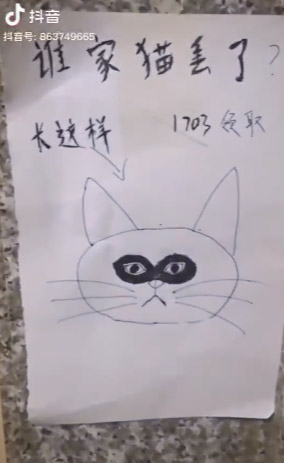 抖音
抖音号: 863749665
谁家猫丢了?
长这样
1703 领取